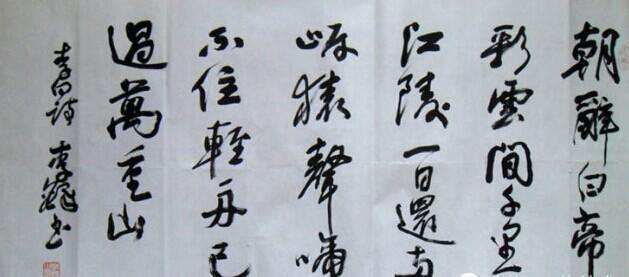 朝辭白帝
彩雲間千里
江陵一日還兩
岸猿聲啼
不住輕舟已
過萬重山
李白詩 書